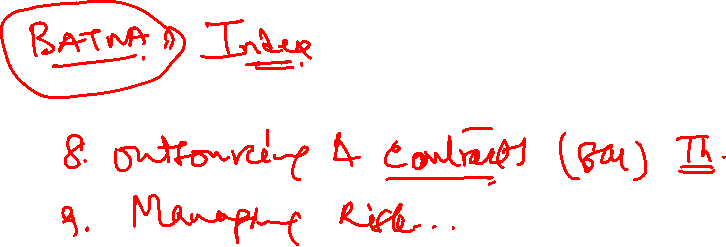 BATNA Index
8. Outsourcing & Contracts (Bal) Th.
9. Managing Risk..